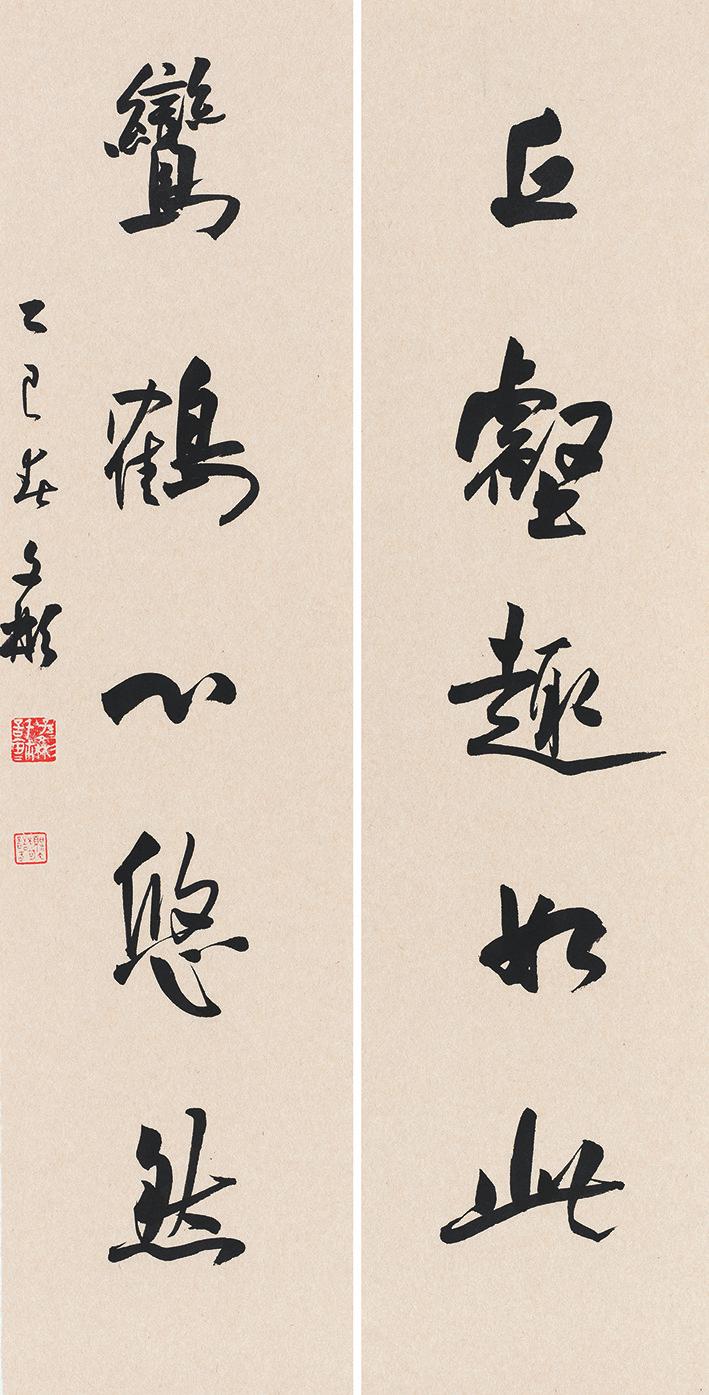 丘壑趣如此
鸞鶴心悠然
乙巳春文彬